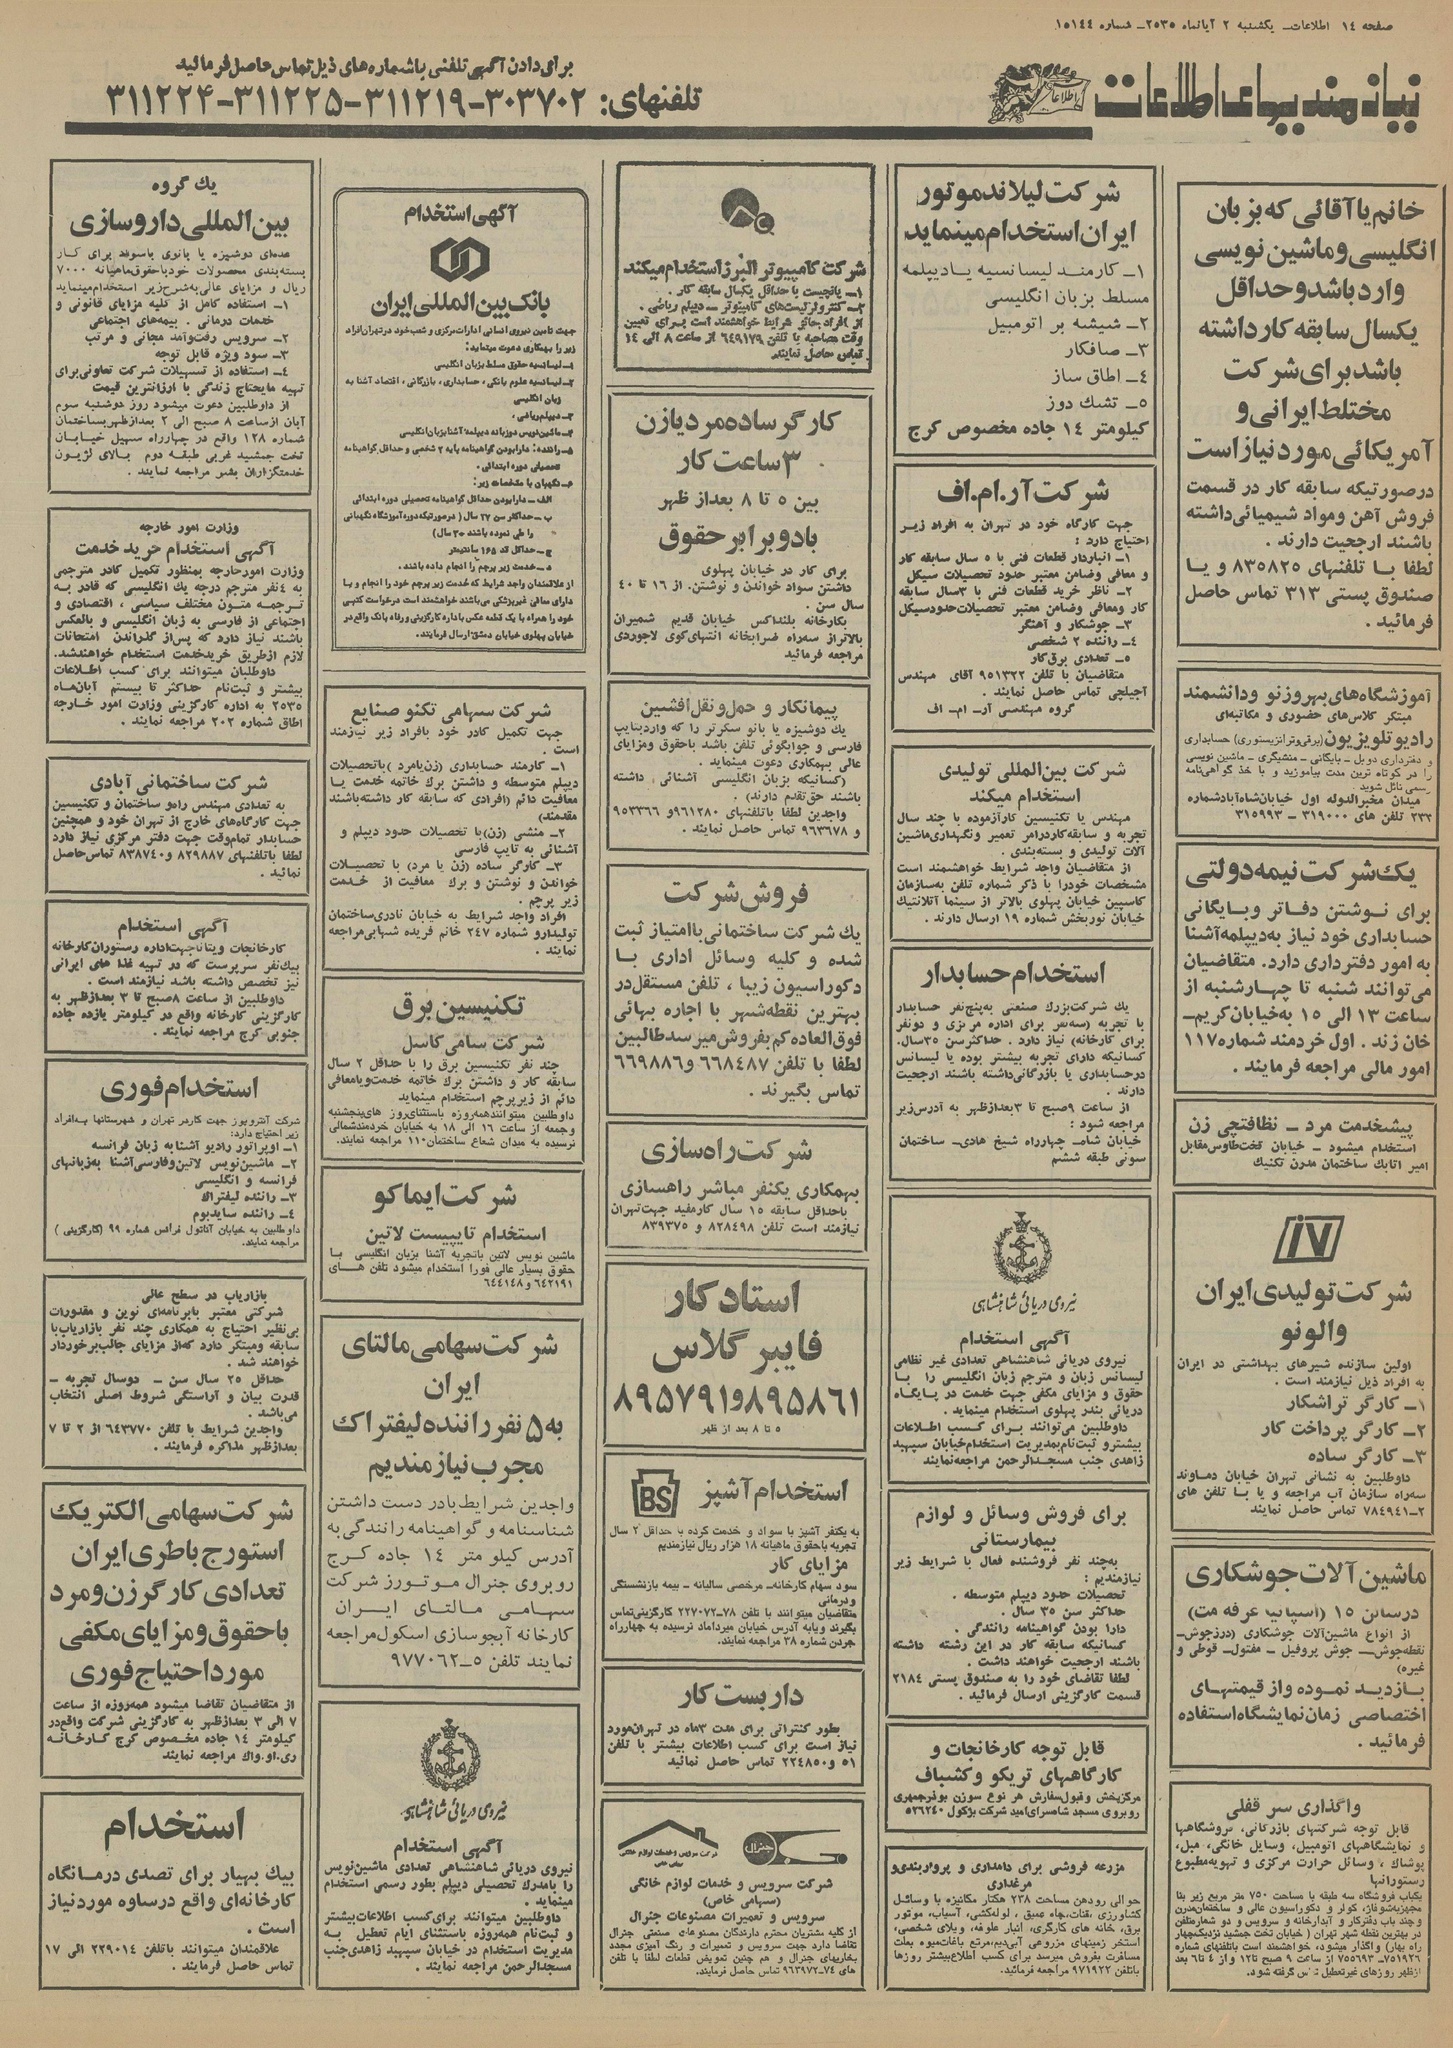 صفحه ۱۴ اطلاعات ـ یکشنبه ۲ آبانماه ۲۵۳۵ ـ شماره ۱۵۱۴۴
نیازمندیهای اطلاعات
برای دادن آگهی تلفنی با شماره‌های ذیل تماس حاصل فرمائید
تلفنهای: ۳۰۳۷۰۲-۳۱۱۲۱۹-۳۱۱۲۲۵-۳۱۱۲۲۴
خانم یا آقائی که بزبان
انگلیسی و ماشین نویسی
وارد باشد و حداقل
یکسال سابقه کار داشته
باشد برای شرکت
مختلط ایرانی و
آمریکائی مورد نیاز است
در صورتیکه سابقه کار در قسمت
فروش آهن و مواد شیمیائی داشته
باشند ارجحیت دارند .
لطفا با تلفنهای ۸۳۵۸۲۵ و یا
صندوق پستی ۳۱۳ تماس حاصل
فرمائید .
آموزشگاه‌های بهروز نو و دانشمند
مبتکر کلاس‌های حضوری و مکاتبه‌ای
رادیو تلویزیون (برقی و ترانزیستوری) حسابداری
و دفترداری دوبل ـ بایگانی ـ منشیگری ـ ماشین نویسی
را در کوتاه ترین مدت بیاموزید و با خذ گواهی‌نامه
رسمی نائل شوید
میدان مخبرالدوله اول خیابان شاه‌آباد شماره
۲۳۲ تلفن های ۳۱۹۰۰۰ ـ ۳۱۵۹۹۳
یک شرکت نیمه دولتی
برای نوشتن دفاتر و بایگانی
حسابداری خود نیاز به دیپلمه آشنا
به امور دفترداری دارد. متقاضیان
می‌توانند شنبه تا چهارشنبه از
ساعت ۱۳ الی ۱۵ به خیابان کریم-
خان زند . اول خردمند شماره ۱۱۷
امور مالی مراجعه فرمایند .
پیشخدمت مرد ـ نظافتچی زن
استخدام میشود ـ خیابان تخت طاوس مقابل
امیر اتابک ساختمان مدرن تکنیک
IV
شرکت تولیدی ایران
والونو
اولین سازنده شیرهای بهداشتی در ایران
به افراد ذیل نیازمند است .
۱ـ کارگر تراشکار
۲ـ کارگر پرداخت کار
۳ـ کارگر ساده
داوطلبین به نشانی تهران خیابان دماوند
سه‌راه سازمان آب مراجعه و یا با تلفن های
۲-۷۸۴۹۴۱ تماس حاصل نمایند
ماشین آلات جوشکاری
در سالن ۱۵ (آسپانیا غرفه مت)
از انواع ماشین‌آلات جوشکاری (درزجوش-
نقطه‌جوش ـ جوش پروفیل ـ مفتول ـ قوطی و
غیره)
بازدید نموده و از قیمتهای
اختصاصی زمان نمایشگاه استفاده
فرمائید .
واگذاری سرقفلی
قابل توجه شرکتهای بازرگانی، فروشگاهها
و نمایشگاههای اتومبیل، وسایل خانگی، مبل،
پوشاک ، وسائل حرارت مرکزی و تهویه مطبوع
رستورانها
یکباب فروشگاه سه طبقه با مساحت ۷۵۰ متر مربع زیر بنا
مجهز به شوفاژ، کولر و دکوراسیون عالی و ساختمان مدرن
و چند باب دفتر کار و آبدارخانه و سرویس و دو شماره تلفن
در بهترین نقطه شهر تهران ( خیابان تخت جمشید نزدیک چهار
راه بهار) واگذار میشود، خواهشمند است با تلفنهای شماره
۷۵۱۹۲۶ـ ۷۵۵۶۹۳ از ساعت ۹ صبح تا ۱۲ و از ۴ تا ۶ بعد
از ظهر روزهای غیر تعطیل تماس گرفته شود.
شرکت لیلاند موتور
ایران استخدام مینماید
۱ـ کارمند لیسانسیه یا دیپلمه
مسلط بزبان انگلیسی
۲ـ شیشه بر اتومبیل
۳ـ صافکار
۴ـ اطاق ساز
۵ـ تشک دوز
کیلومتر ۱۴ جاده مخصوص کرج
شرکت آر . ام . اف
جهت کارگاه خود در تهران به افراد زیر
احتیاج دارد :
۱ـ انباردار قطعات فنی با ۵ سال سابقه کار
و معافی و ضامن معتبر حدود تحصیلات سیکل
۲ـ ناظر خرید قطعات فنی با ۳ سال سابقه
کار و معافی و ضامن معتبر تحصیلات حدود سیکل
۳ـ جوشکار و آهنگر
۴ـ راننده ۲ شخصی
۵ـ تعدادی برق کار
متقاضیان با تلفن ۹۵۱۳۲۲ آقای مهندس
آجیلچی تماس حاصل نمایند .
گروه مهندسی آر - ام - اف
شرکت بین‌المللی تولیدی
استخدام میکند
مهندس یا تکنیسین کارآزموده با چند سال
تجربه و سابقه کار در امر تعمیر و نگهداری ماشین
آلات تولیدی و بسته‌بندی .
از متقاضیان واجد شرایط خواهشمند است
مشخصات خود را با ذکر شماره تلفن به سازمان
کاسپین خیابان پهلوی بالاتر از سینما آتلانتیک
خیابان نوربخش شماره ۱۹ ارسال دارند .
استخدام حسابدار
یک شرکت بزرگ صنعتی به پنج نفر حسابدار
با تجربه (سه نفر برای اداره مرکزی و دو نفر
برای کارخانه) نیاز دارد . حداکثر سن ۳۵ سال.
کسانیکه دارای تجربه بیشتر بوده یا لیسانس
در حسابداری یا بازرگانی داشته باشند ارجحیت
دارند .
از ساعت ۹ صبح تا ۳ بعد از ظهر به آدرس زیر
مراجعه شود :
خیابان شاه ـ چهارراه شیخ هادی ـ ساختمان
سونی طبقه ششم
نیروی دریائی شاهنشاهی
آگهی استخدام
نیروی دریائی شاهنشاهی تعدادی غیر نظامی
لیسانس زبان و مترجم زبان انگلیسی را با
حقوق و مزایای مکفی جهت خدمت در پایگاه
دریائی بندر پهلوی استخدام مینماید.
داوطلبین می‌توانند برای کسب اطلاعات
بیشتر و ثبت نام بمدیریت استخدام خیابان سپهبد
زاهدی جنب مسجدالرحمن مراجعه نمایند
برای فروش وسائل و لوازم
بیمارستانی
به‌چند نفر فروشنده فعال با شرایط زیر
نیازمندیم :
تحصیلات حدود دیپلم متوسطه .
حداکثر سن ۳۵ سال .
دارا بودن گواهینامه رانندگی .
کسانیکه سابقه کار در این رشته داشته
باشند ارجحیت خواهند داشت .
لطفا تقاضای خود را به صندوق پستی ۲۱۸۴
قسمت کارگزینی ارسال فرمائید .
قابل توجه کارخانجات و
کارگاههای تریکو و کشباف
مرکز پخش و قبول سفارش هر نوع سوزن بوذرجمهری
روبروی مسجد شاه سرای امید شرکت بژکول ۵۳۶۲۴۰
مزرعه فروشی برای دامداری و پرواربندی و
مرغداری
حوالی رودهن مساحت ۲۳۸ هکتار مکانیزه با وسائل
کشاورزی ،قنات، چاه عمیق ، لوله‌کشی، آسیاب، موتور
برق، خانه های کارگری، انبار علوفه، ویلای شخصی،
استخر زمینهای مزروعی آبی دیم مرتع باغات میوه بعلت
مسافرت بفروش میرسد برای کسب اطلاع بیشتر روزها
با تلفن ۹۷۱۹۲۲ مراجعه فرمائید.
شرکت کامپیوتر البرز استخدام میکند
۱ـ پانچیست با حداقل یکسال سابقه کار .
۲ـ کنترولریست‌های کامپیوتر ـ دیپلم ریاضی .
از افراد حائز شرایط خواهشمند است برای تعیین
وقت مصاحبه با تلفن ۶۴۹۱۷۹ از ساعت ۸ الی ۱۴
تماس حاصل نمایند.
کارگر ساده مرد یا زن
۳ ساعت کار
بین ۵ تا ۸ بعد از ظهر
با دو برابر حقوق
برای کار در خیابان پهلوی
داشتن سواد خواندن و نوشتن. از ۱۶ تا ۴۰
سال سن .
بکارخانه بلنداکس خیابان قدیم شمیران
بالاتر از سه‌راه ضرابخانه انتهای کوی لاجوردی
مراجعه فرمائید
پیمانکار و حمل و نقل افشین
یک دوشیزه یا بانو سکرتر را که وارد بتایپ
فارسی و جوابگوئی تلفن باشد با حقوق و مزایای
عالی بهمکاری دعوت مینماید .
(کسانیکه بزبان انگلیسی آشنائی داشته
باشند حق تقدم دارند) .
واجدین لطفا با تلفنهای ۹۶۱۲۸۰ و ۹۵۳۳۶۶
و ۹۶۳۶۷۸ تماس حاصل نمایند .
فروش شرکت
یک شرکت ساختمانی با امتیاز ثبت
شده و کلیه وسائل اداری با
دکوراسیون زیبا ، تلفن مستقل در
بهترین نقطه شهر با اجاره بهائی
فوق‌العاده کم بفروش میرسد طالبین
لطفا با تلفن ۶۶۸۴۸۷ و ۶۶۹۸۸۶
تماس بگیرند .
شرکت راه‌سازی
بهمکاری یکنفر مباشر راهسازی
با حداقل سابقه ۱۵ سال کار مفید جهت تهران
نیازمند است تلفن ۸۲۸۴۹۸ و ۸۳۹۳۷۵
استاد کار
فایبر گلاس
۸۹۵۸۶۱ و ۸۹۵۷۹۱
۵ تا ۸ بعد از ظهر
استخدام آشپز
BS
به یکنفر آشپز با سواد و خدمت کرده با حداقل ۲ سال
تجربه با حقوق ماهیانه ۱۸ هزار ریال نیازمندیم
مزایای کار
سود سهام کارخانه ـ مرخصی سالیانه ـ بیمه بازنشستگی
و درمانی
متقاضیان میتوانند با تلفن ۷۸-۲۲۷۰۷۲ کارگزینی تماس
بگیرند و یا به آدرس خیابان میرداماد نرسیده به چهارراه
جردن شماره ۳۸ مراجعه نمایند.
داربست کار
بطور کنتراتی برای مدت ۳ ماه در تهران مورد
نیاز است برای کسب اطلاعات بیشتر با تلفن
۵۱ و ۲۲۴۸۵۰ تماس حاصل نمائید
جنرال
شرکت سرویس و خدمات لوازم خانگی
سهامی خاص
شرکت سرویس و خدمات لوازم خانگی
(سهامی خاص)
سرویس و تعمیرات مصنوعات جنرال
از کلیه مشتریان محترم دارندگان مصنوعات صنعتی جنرال
تقاضا دارد جهت سرویس و تعمیرات و رنگ آمیزی مجدد
بخاریهای جنرال و هم چنین تعویض قطعات لطفا با تلفن
های ۷۴-۹۶۳۹۷۲ تماس حاصل فرمایند.
آگهی استخدام
بانک بین المللی ایران
جهت تامین نیروی انسانی ادارات مرکزی و شعب خود در تهران افراد
زیر را بهمکاری دعوت مینماید:
۱ـ لیسانسیه حقوق مسلط بزبان انگلیسی
۲ـ لیسانسیه علوم بانکی ، حسابداری ، بازرگانی ، اقتصاد آشنا به
زبان انگلیسی
۳ـ دیپلم ریاضی .
۴ـ ماشین نویس دوزبانه دیپلمه آشنا بزبان انگلیسی
۵ـ راننده: دارا بودن گواهینامه پایه ۲ شخصی و حداقل گواهینامه
تحصیلی دوره ابتدائی .
۶ـ نگهبان با مشخصات زیر:
الف ـ دارا بودن حداقل گواهینامه تحصیلی دوره ابتدائی
ب ـ حداکثر سن ۲۷ سال ( در صورتیکه دوره آموزشگاه نگهبانی
را طی نموده باشند ۳۰ سال)
ج ـ حداقل قد ۱۶۵ سانتیمتر
د ـ خدمت زیر پرچم را انجام داده باشند .
از علاقمندان واجد شرایط که خدمت زیر پرچم خود را انجام و یا
دارای معافی غیر پزشکی می‌باشند خواهشمند است درخواست کتبی
خود را همراه با یک قطعه عکس با داره کارگزینی و رفاه بانک واقع در
خیابان پهلوی خیابان دمشق ارسال فرمایند.
شرکت سهامی تکنو صنایع
جهت تکمیل کادر خود بافراد زیر نیازمند
است .
۱ـ کارمند حسابداری (زن یا مرد ) با تحصیلات
دیپلم متوسطه و داشتن برگ خاتمه خدمت یا
معافیت دائم (افرادی که سابقه کار داشته باشند
مقدمند)
۲ـ منشی (زن) با تحصیلات حدود دیپلم و
آشنائی به تایپ فارسی
۳ـ کارگر ساده (زن یا مرد) با تحصیلات
خواندن و نوشتن و برگ معافیت از خدمت
زیر پرچم .
افراد واجد شرایط به خیابان نادری ساختمان
تولیدارو شماره ۲۴۷ خانم فریده شهابی مراجعه
نمایند .
تکنیسین برق
شرکت سامی کاسل
چند نفر تکنیسین برق را با حداقل ۲ سال
سابقه کار و داشتن برگ خاتمه خدمت و یا معافی
دائم از زیر پرچم استخدام مینماید
داوطلبین میتوانند همه روزه باستثنای روز های پنجشنبه
و جمعه از ساعت ۱۶ الی ۱۸ به خیابان خردمند شمالی
نرسیده به میدان شعاع ساختمان ۱۱۰ مراجعه نمایند.
شرکت ایماکو
استخدام تایپیست لاتین
ماشین نویس لاتین با تجربه آشنا بزبان انگلیسی با
حقوق بسیار عالی فورا استخدام میشود تلفن های
۶۴۲۱۹۱ و ۶۴۴۱۴۸
شرکت سهامی مالتای
ایران
به ۵ نفر راننده لیفتراک
مجرب نیازمندیم
واجدین شرایط با در دست داشتن
شناسنامه و گواهینامه رانندگی به
آدرس کیلو متر ۱۴ جاده کرج
روبروی جنرال موتورز شرکت
سهامی مالتای ایران
کارخانه آبجوسازی اسکول مراجعه
نمایند تلفن ۵-۹۷۷۰۶۲
نیروی دریائی شاهنشاهی
آگهی استخدام
نیروی دریائی شاهنشاهی تعدادی ماشین نویس
را با مدرک تحصیلی دیپلم بطور رسمی استخدام
مینماید.
داوطلبین میتوانند برای کسب اطلاعات بیشتر
و ثبت نام همه‌روزه باستثنای ایام تعطیل به
مدیریت استخدام در خیابان سپهبد زاهدی جنب
مسجدالرحمن مراجعه نمایند .
یک گروه
بین‌المللی داروسازی
عده‌ای دوشیزه یا بانوی با سواد برای کار
بسته‌بندی محصولات خود با حقوق ماهیانه ۷۰۰۰
ریال و مزایای عالی به شرح زیر استخدام مینماید
۱ـ استفاده کامل از کلیه مزایای قانونی و
خدمات درمانی . بیمه‌های اجتماعی
۲ـ سرویس رفت و آمد مجانی و مرتب
۳ـ سود ویژه قابل توجه
۴ـ استفاده از تسهیلات شرکت تعاونی برای
تهیه مایحتاج زندگی با ارزانترین قیمت
از داوطلبین دعوت میشود روز دوشنبه سوم
آبان از ساعت ۸ صبح الی ۲ بعد از ظهر بساختمان
شماره ۱۲۸ واقع در چهارراه سهیل خیابان
تخت جمشید غربی طبقه دوم بالای لژیون
خدمتگزاران بشر مراجعه نمایند .
وزارت امور خارجه
آگهی استخدام خرید خدمت
وزارت امور خارجه بمنظور تکمیل کادر مترجمی
به ۴ نفر مترجم درجه یک انگلیسی که قادر به
ترجمه متون مختلف سیاسی ، اقتصادی و
اجتماعی از فارسی به زبان انگلیسی و بالعکس
باشند نیاز دارد که پس از گذراندن امتحانات
لازم از طریق خرید خدمت استخدام خواهند شد.
داوطلبان میتوانند برای کسب اطلاعات
بیشتر و ثبت نام حداکثر تا بیستم آبان ماه
۲۵۳۵ به اداره کارگزینی وزارت امور خارجه
اطاق شماره ۲۰۲ مراجعه نمایند .
شرکت ساختمانی آبادی
به تعدادی مهندس راه و ساختمان و تکنیسین
جهت کارگاه‌های خارج از تهران خود و همچنین
حسابدار تمام وقت جهت دفتر مرکزی نیاز دارد
لطفا با تلفنهای ۸۲۹۸۸۷ و ۸۳۸۷۴۰ تماس حاصل
نمائید .
آگهی استخدام
کارخانجات ویتانا جهت اداره رستوران کارخانه
بیک نفر سرپرست که در تهیه غذا های ایرانی
نیز تخصص داشته باشد نیازمند است .
داوطلبین از ساعت ۸ صبح تا ۳ بعد از ظهر به
کارگزینی کارخانه واقع در کیلومتر یازده جاده
جنوبی کرج مراجعه نمایند .
استخدام فوری
شرکت آنترپوز جهت کادر تهران و شهرستانها به افراد
زیر احتیاج دارد:
۱ـ اوپراتور رادیو آشنا به زبان فرانسه
۲ـ ماشین نویس لاتین و فارسی آشنا به زبانهای
فرانسه و انگلیسی
۳ـ راننده لیفتراک
۴ـ راننده سایدبوم
داوطلبین به خیابان آناتول فرانس شماره ۹۹ (کارگزینی )
مراجعه نمایند.
بازاریاب در سطح عالی
شرکتی معتبر با برنامه‌ای نوین و مقدورات
بی‌نظیر احتیاج به همکاری چند نفر بازاریاب با
سابقه و مبتکر دارد که از مزایای جالب برخوردار
خواهند شد .
حداقل ۲۵ سال سن ـ دو سال تجربه ـ
قدرت بیان و آراستگی شروط اصلی انتخاب
می‌باشد .
واجدین شرایط با تلفن ۶۴۳۷۷۰ از ۲ تا ۷
بعد از ظهر مذاکره فرمایند .
شرکت سهامی الکتریک
استورج باطری ایران
تعدادی کارگر زن و مرد
با حقوق و مزایای مکفی
مورد احتیاج فوری
از متقاضیان تقاضا میشود همه روزه از ساعت
۷ الی ۳ بعد از ظهر به کارگزینی شرکت واقع در
کیلومتر ۱۴ جاده مخصوص کرج کارخانه
ری.او.واک مراجعه نمایند
استخدام
بیک بهیار برای تصدی درمانگاه
کارخانه‌ای واقع در ساوه مورد نیاز
است .
علاقمندان میتوانند با تلفن ۲۲۹۰۱۴ الی ۱۷
تماس حاصل فرمایند .